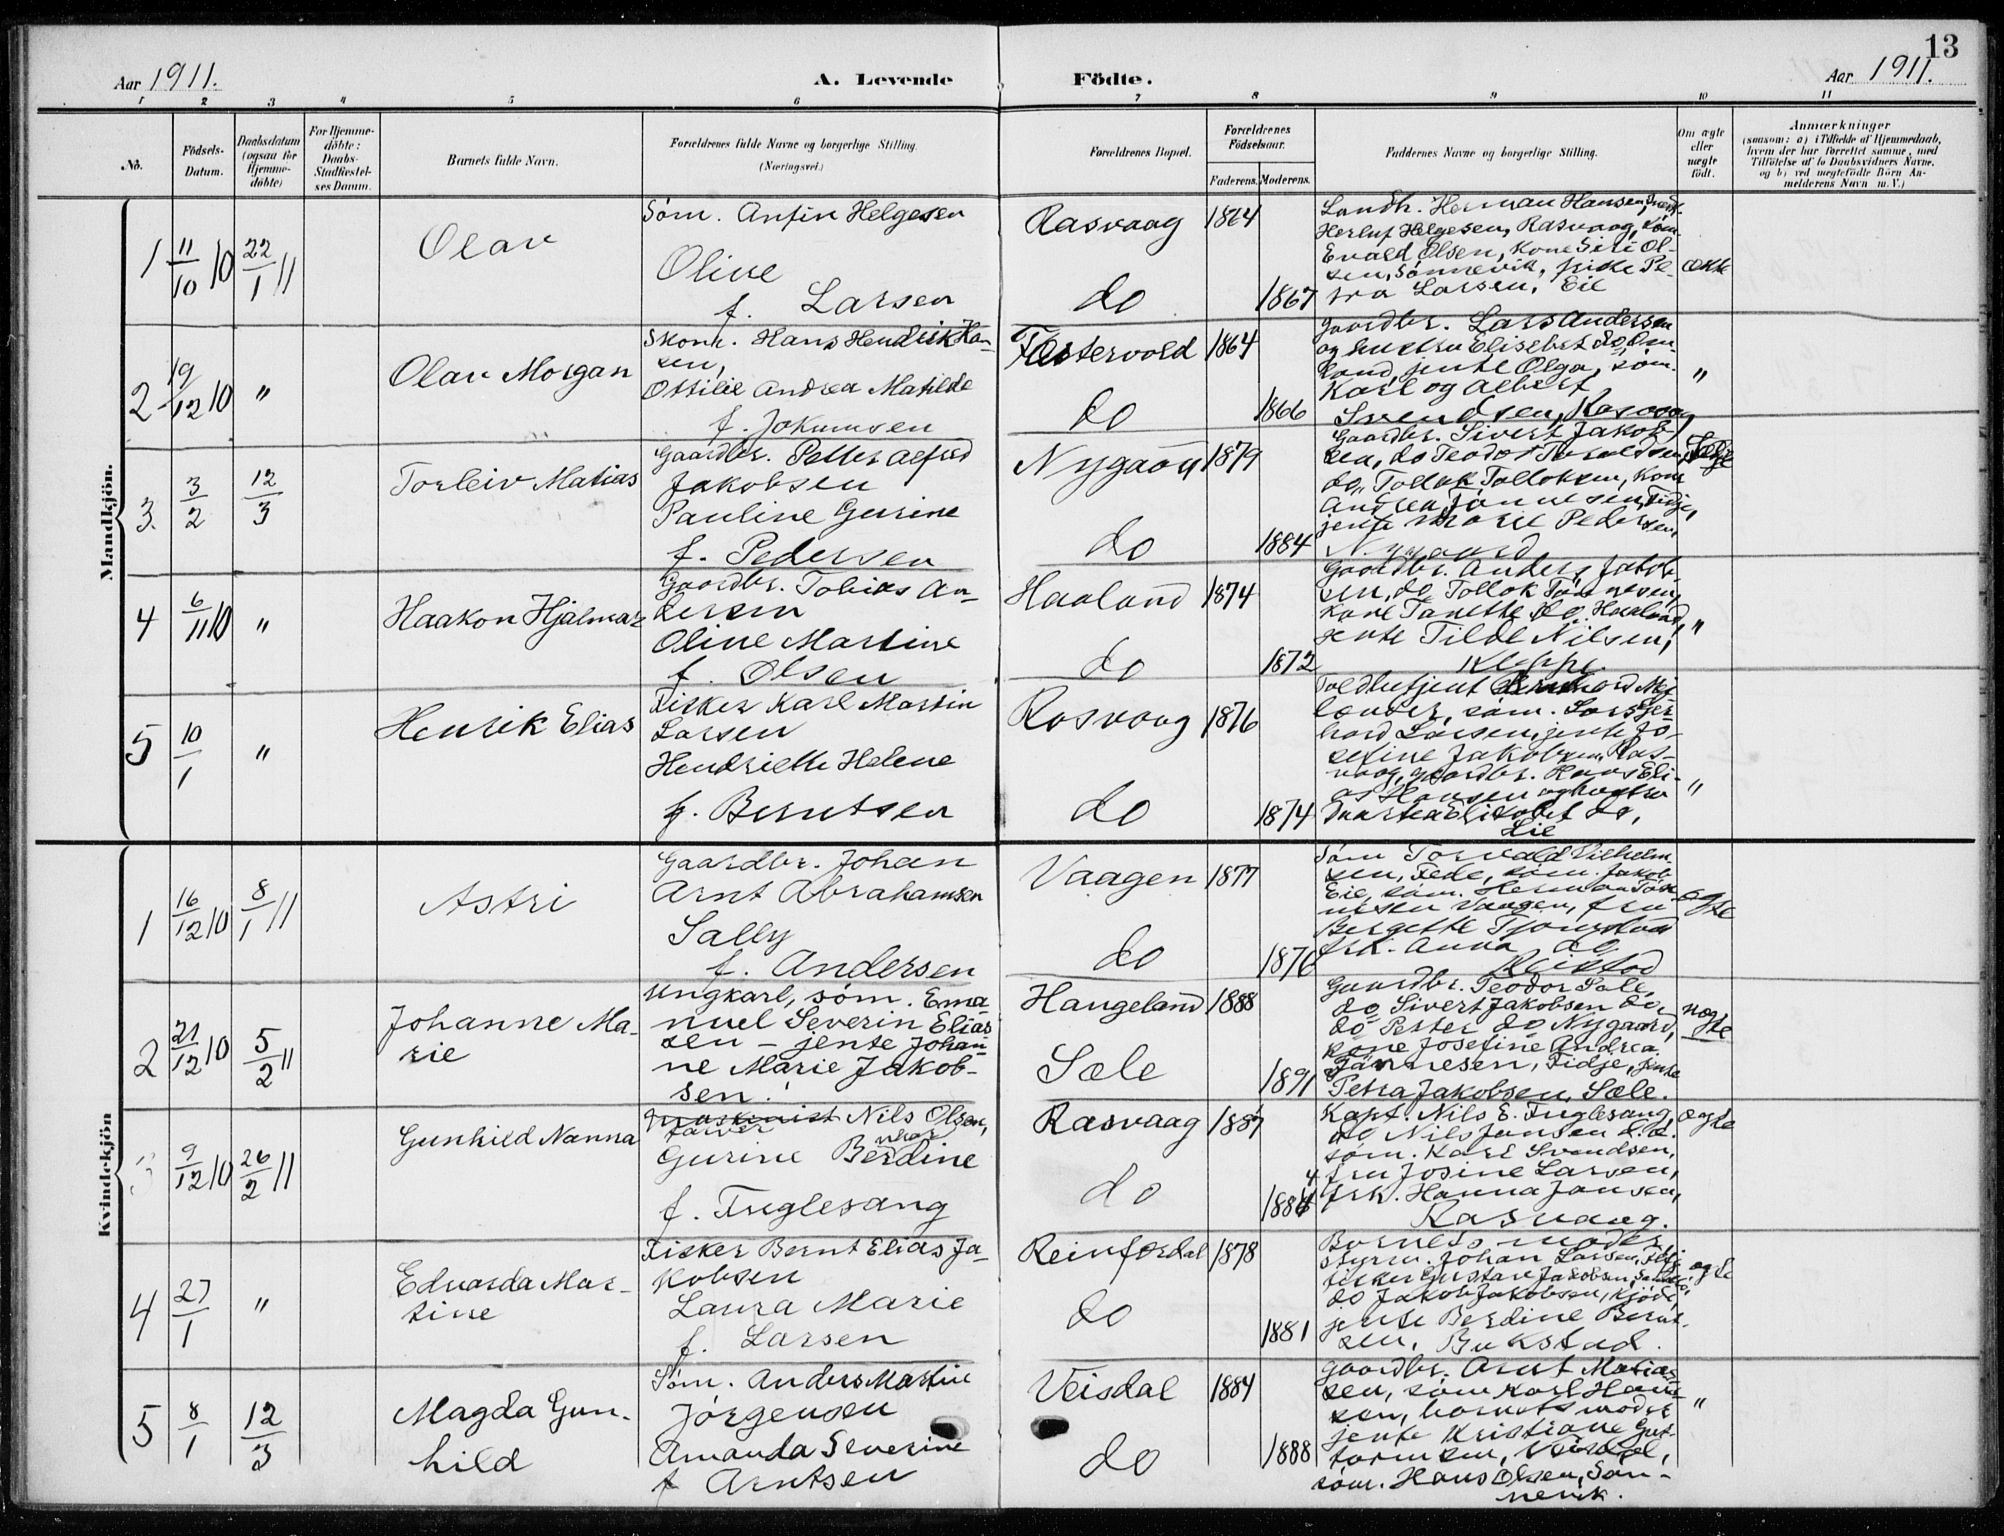 13
Aar 1911.
A. Levende
Födte.
Aar 1911.
1 2 3 4 5 6 7 8 9 10 11
No.
Födsels-
Datum.
Daabsdatum
(ogsaa for
Hjemme-
döbte)
For Hjemme-
döbte:
Daabs-
Stadfæstel-
ses Datum.
Barnets fulde Navn.
Forældrenes fulde Navne og borgerlige Stilling.
(Næringsvei.)
Forældrenes Bopæl.
Forældrenes
Födselsaar.
Faderens.
Moderens.
Faddernes Navne og borgerlige Stilling.
Om ægte
eller
uægte
født.
Anmærkninger
(saasom: a) i Tilfælde af Hjemmedaab,
hvem der har forrettet samme, med
Tilföielse af to Daabsvidners Navne,
og b) ved uegtefödte Börn An-
melderens Navn m. V.)
Mandkjön.
1
11/10 10
22/1 11
Olav
Søm. Anfin Helgesen
Olive
f. Larsen
Rasvaag
do
1864
1867
Landh. Herman Hansen,
Herluf Helgesen, Rasvaag, søm.
Evald Olsen, Kone Siri Ol-
sen, Sønnevik, frøke Pe-
tra Larsen, Eie
ækte
2
19/12 10
"
Olav Morgan
Skom. Hans Hendrik Han-
sen,
Ottilie Andrea Matilde
f. Jokumsen
Festervold
do
1864
1866
Gaardbr. Lars Andersen
og hustru Elisebet do,
jente Olga, søm.
Karl og Albert
Svendsen, Rasvaag
"
3.
3/2
12/3
Torleiv Matias
Gaardbr. Petter Alfred
Jakobsen
Pauline Gurine
f. Pedersen
Nygaard
do
1879
1884
Gaardbr. Sivert Jakob-
sen, do Teodor Taraldsen,
do, Tollak Tollaksen, Kone
Andrea Tønnesen, Fidje,
jente Marie Pedersen,
Nygaard
4
6/11 10
"
Haakon Hjalmar
Gaardbr. Tobias An-
dersen
Oline Martine
f. Olsen
Haaland
do
1874
1872
Gaardbr. Anders Jakob-
sen, do Tollak Tønnesen,
Kone Tanette do, Haaland,
jente Tilde Nilsen,
"
5
10/1
"
Henrik Elias
Fisker Karl Martin
Larsen
Hendriette Helene
f. Berntsen
Rasvaag
do
1876
1874
Toldbetjent
søm. Lars Ger-
hard Larsen, jente Jo-
sefine Jakobsen, Ras-
vaag, gaardbr. Hans Eli-
as Hansen og hustru
Marta Elisabet do,
Eie
"
Kvindekjön
1
16/12 10
8/1 11
Astri
Gaardbr. Johan
Arnt Abrahamsen
Sally
f. Andersen
Vaagen
do
1877
1876
Søm Torvald Vilhelm-
sen, Fede, søm. Jakob
Eie, søm. Herman Tøn-
nesen Vaagen, fru
Bergette
frk. Anna do.
ægte
2
21/12 10
5/2 11
Johanne Ma-
rie
Ungkarl, søm. Ema-
nuel Severin Elias-
sen – jente Johan-
ne Marie Jakob-
sen.
Haugeland
Sæle
1888
1891
Gaardbr. Teodor Sæle,
do Sivert Jakobsen do,
do Petter do Nygaard,
Kone Josefine Andrea
Tønnesen, Fidje, jente
Petra Jakobsen, Sæle.
uægte
9/12 10
26/2 11
Gunhild Nanna
Maskinist Nils Olsen,
Gurine Berdine
f. Fuglesang
Rasvaag
do
1887
1884
Kapt. Nils E. Fuglesang,
do Nils Jansen d.d.
søm. Karl Svendsen,
fru Josine Larsen,
frk. Hanna Jansen,
Rasvaag.
ægte
4
27/1
"
Edvarda Mar-
tine
Fisker Bernt Elias Ja-
kobsen
Laura Marie
f. Larsen
Reinfordal
do
1878
1881
Barnets moder,
styrm. Johan Larsen,
fisker Gustav Jakobsen,
do Jakob Jakobsen,
jente Berdine Bernt-
sen, Bukstad.
ægte
5
8/1
12/3
Magda Gun-
hild
Søm. Anders Martin
Jørgensen
Amanda Severine
f Arntsen
Veisdal
do
1884
1888
Gaardbr. Arnt Matias-
sen, søm Karl Han-
sen, barnets moder
jente Kristiane Gut-
tormsen, Veisdal,
søm. Hans Olsen, Søn-
nevik.
"